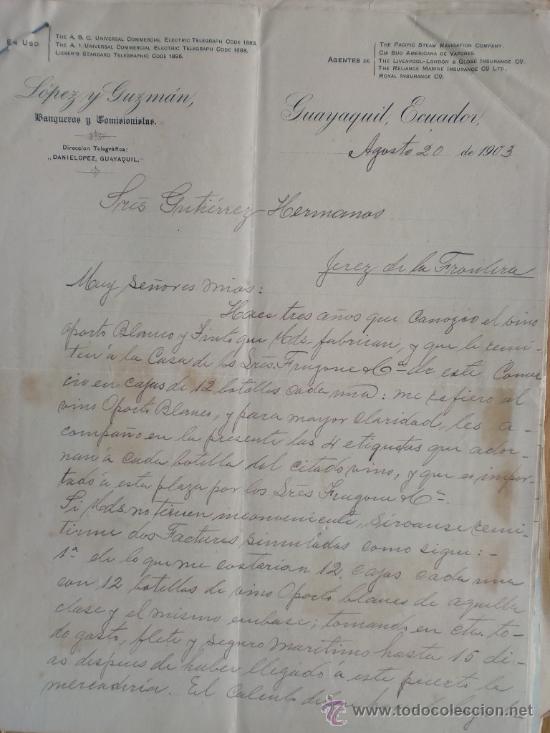 En Uso
The A. B. C. Universal Commercial Electric Telegraph Code 1883.
The A. 1. Universal Commercial Electric Telegraph Code 1888.
Lieber's Standard Telegraphic Code 1896.
Agentes de
The Pacific Steam Navigation Company.
Cia Sud Americana de Vapores.
The Liverpool-London & Globe Insurance Cº
The Reliance Marine Insurance Cº Ltd.
Royal Insurance Cº
López y Guzmán,
Banqueros y Comisionistas.
Direccion Telegráfica:
„DANIELOPEZ, GUAYAQUIL„
Guayaquil, Ecuador,
Agosto 20 de 1903
Sres Gutiérrez Hermanos
Jerez de la Frontera
Muy Señores mios:
Hace tres años que conozco el vino
Oporto Blanco y Tinto que Uds. fabrican, y que le remi-
ten á la Casa de los Sres. Frugone & Cª de este Comer
cio en cajas de 12 botellas cada una: me refiero al
vino Oporto Blanco, y para mayor claridad, les a-
compaño en la presente las 4 etiquetas que ador-
nan á cada botella del citado vino, y que es impor-
tado á esta plaza por los Sres Frugone & Cª
Si Uds no tienen inconveniente, sirvanse remi-
tirme dos Facturas simuladas como sigue: -
1ª de lo que me costarian 12 cajas cada una
con 12 botellas de vino Oporto blanco de aquella
clase y el mismo embase; tomando en cta. to-
do gasto, flete y seguro maritimo hasta 15 di-
as despues de haber llegado á este puerto la
mercaderia. El calculo
todocoleccion
www.todocoleccion.net